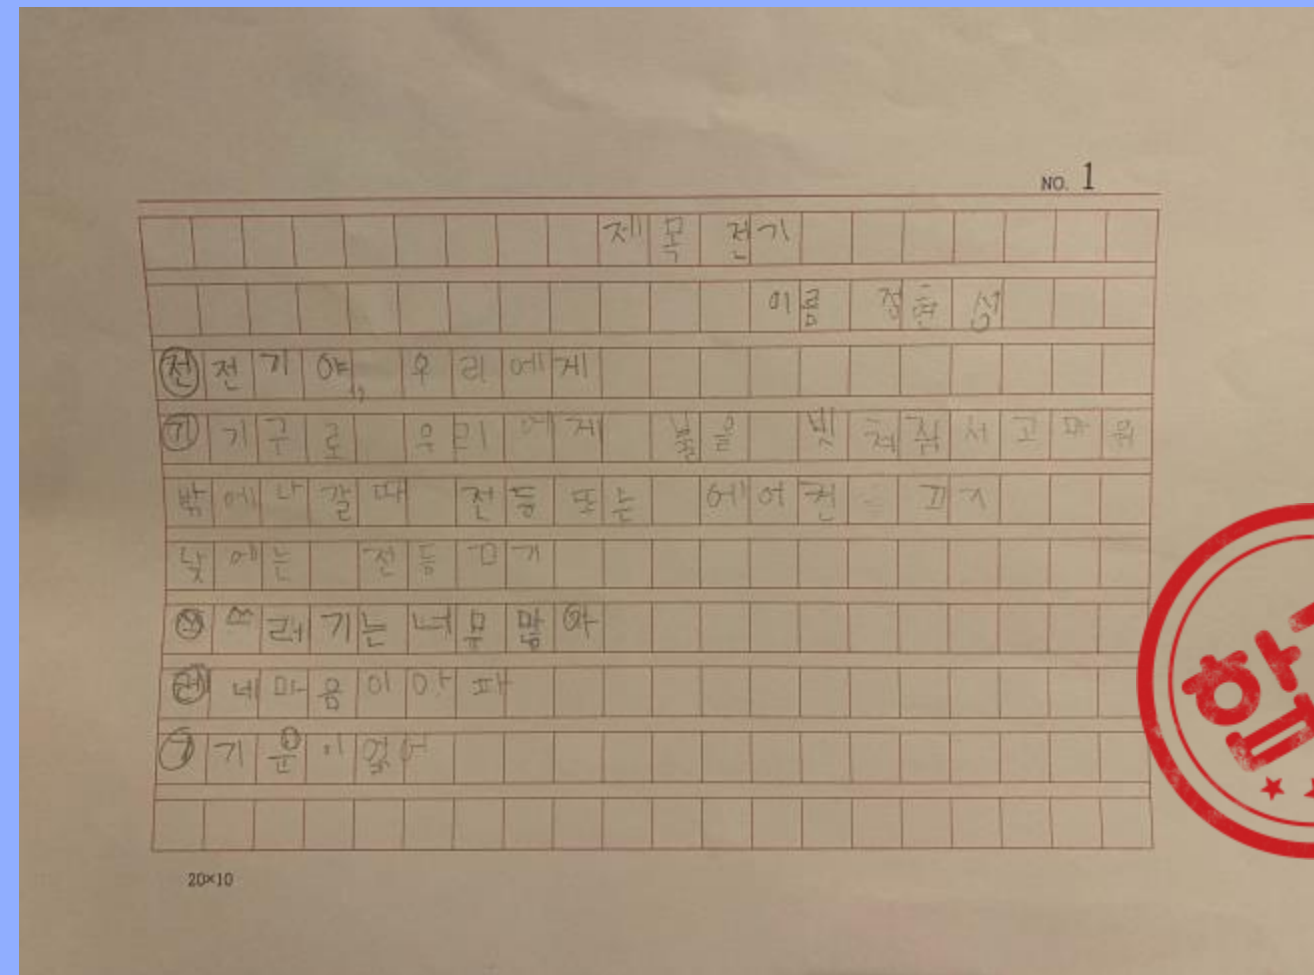 NO. 1
제목 전기
이름 정현성
전 전기야, 우리에게
기 기구로 우리에게 불을 빛춰줘서고마워
밖에나갈때 전등또는 에어컨 끄기
낮에는 전등끄기
쓰 쓰레기는너무많아
레 네마음이아파
기 기운이없어
20×10
합